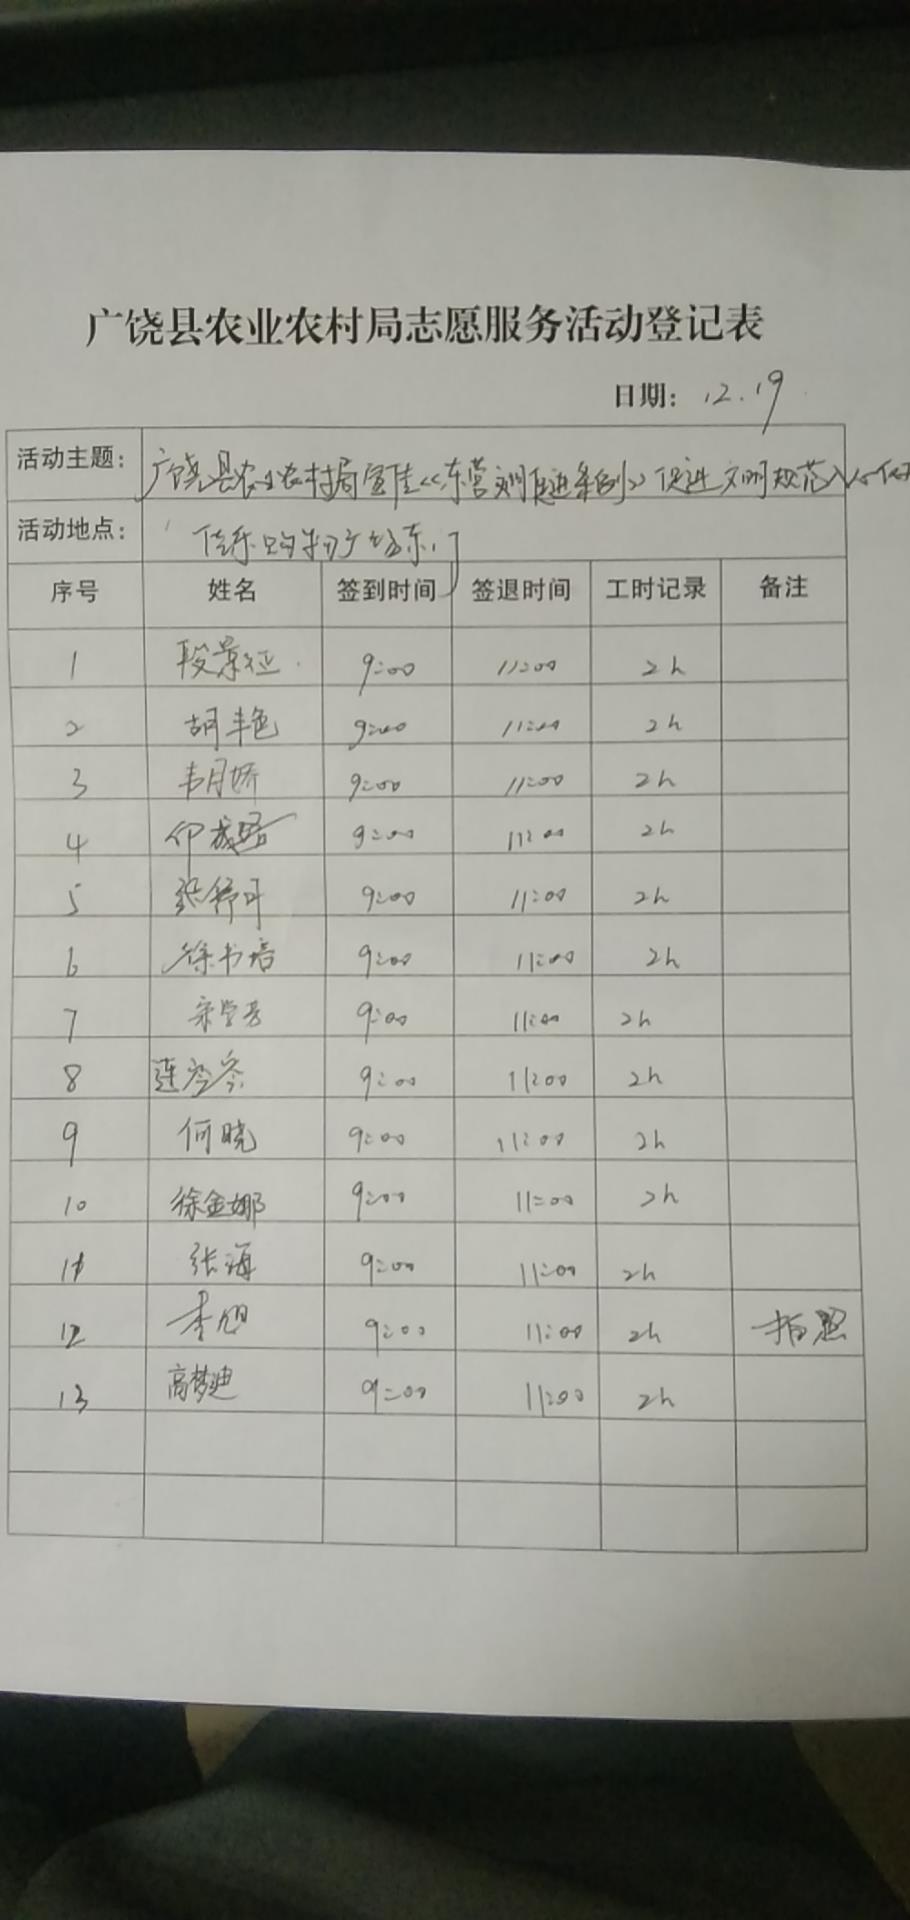 广饶县农业农村局志愿服务活动登记表
日期: 12.19
活动主题: 广饶县农业农村局宣传《东营文明促进条例》促进文明规范入心
活动地点: 佳乐购物广场东门
序号 姓名 签到时间 签退时间 工时记录 备注
1 段景 9:00 11:00 2h
2 胡丰色 9:00 11:00 2h
3 韦月娇 9:00 11:00 2h
4 9:00 11:00 2h
5 张舒可 9:00 11:00 2h
6 徐书培 9:00 11:00 2h
7 9:00 11:00 2h
8 连 9:00 11:00 2h
9 何晓 9:00 11:00 2h
10 徐金娜 9:00 11:00 2h
11 张海 9:00 11:00 2h
12 李旭 9:00 11:00 2h 拍照
13 高梦迪 9:00 11:00 2h